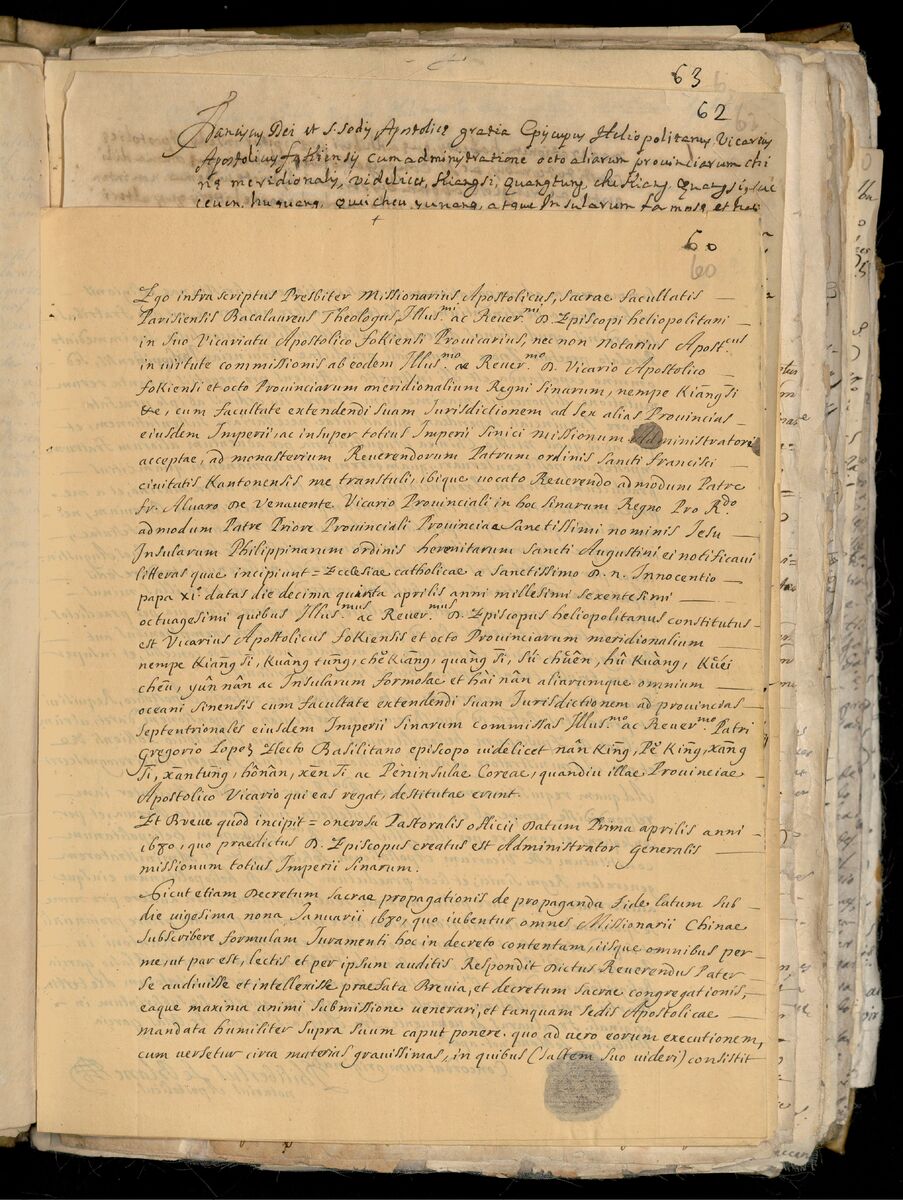 63
62
Franciscus Dei et S. Sedis Apostolicæ gratia Episcupus Heliopolitanus Vicarius
Apostolicus fokiensis cum administratione octo aliarum prouinciarum chi
næ meridionalis, videlicet, Kiangsi, quangtung, che Kiang, Quangsi, suc
cuen, huquang, Queicheu yunang, atque Insularum formosæ, et hai
+
60
60
Ego infra scriptus Presbiter Missionarius Apostolicus, sacrae facultatis
Parisiensis Bacalaureus Theologus, Illus.mi ac Reuer.mi D. Episcopi heliopolitani
in suo Vicariatu Apostolico fokiensi Prouicarius, nec non Notarius Apost.cus
in uirtute commissionis ab eodem Illus.mo ac Reuer.mo D. Vicario Apostolico
fokiensi et octo Prouinciarum meridionalium Regni Sinarum, nempe Kiāng Si
&c, cum facultate extendendi suam Iurisdictionem ad sex alias Prouincias
eiusdem Imperii, ac insuper totius Imperii Sinici missionum Administratori
acceptae, ad monasterium Reuerendorum Patrum ordinis Sancti Francisci
ciuitatis Kantonensis me transtuli, ibique uocato Reuerendo admodum Patre
fr. Aluaro de Venauente Vicario Prouinciali in hoc Sinarum Regno Pro R.do
admodum Patre Priore Prouinciali Prouinciae Sanctissimi nominis Iesu
Insularum Philippinarum ordinis heremitarum Sancti Augustini ei notificaui
litteras quae incipiunt = Ecclesiae catholicae a Sanctissimo D. n. Innocentio
papa XI.o datas die decima quinta aprilis anni millesimi sexentesimi
octuagesimi quibus Illus.mus ac Reuer.mus D. Episcopus heliopolitanus constitutus
est Vicarius Apostolicus fokiensis et octo Prouinciarum meridionalium
nempe Kiāng Si, Kuàng tūng, chĕ Kiāng, quàng Si, Sú chŭen, hû Kuàng, Kuéi
cheū, yûn nân ac Insularum formosae et hài nân aliarumque omnium
oceani sinensis cum facultate extendendi suam Iurisdictionem ad prouincias
septentrionales eiusdem Imperii Sinarum commissas Illus.mo ac Reuer.mo Patri
Gregorio Lopez Electo Basilitano episcopo uidelicet nân King, Pĕ King, xān
Si, xān tūng, hônân, xèn Si ac Peninsulae Coreae, quandiu illae Prouinciae
Apostolico Vicario qui eas regat, destitutae erunt.
Et Breue quod incipit = onerosa Pastoralis officii Datum Prima aprilis anni
1680, quo praedictus D. Episcopus creatus est Administrator generalis
missionum totius Imperii Sinarum.
Sicut etiam Decretum sacrae propagationis de propaganda fide latum sub
die uigesima nona Ianuarii 1680, quo iubentur omnes Missionarii Chinae
subscribere formulam Iuramenti hoc in decreto contentam, iisque omnibus per
me, ut par est, lectis et per ipsum auditis Respondit Dictus Reuerendus Pater
se audiuisse et intellexisse praefata Breuia, et decretum sacrae congregationis,
eaque maxima animi submissione uenerari, et tanquam sedis Apostolicae
mandata humiliter supra suum caput ponere. quo ad uero eorum executionem,
cum uersetur circa materias grauissimas, in quibus (saltem suo uideri) consistit